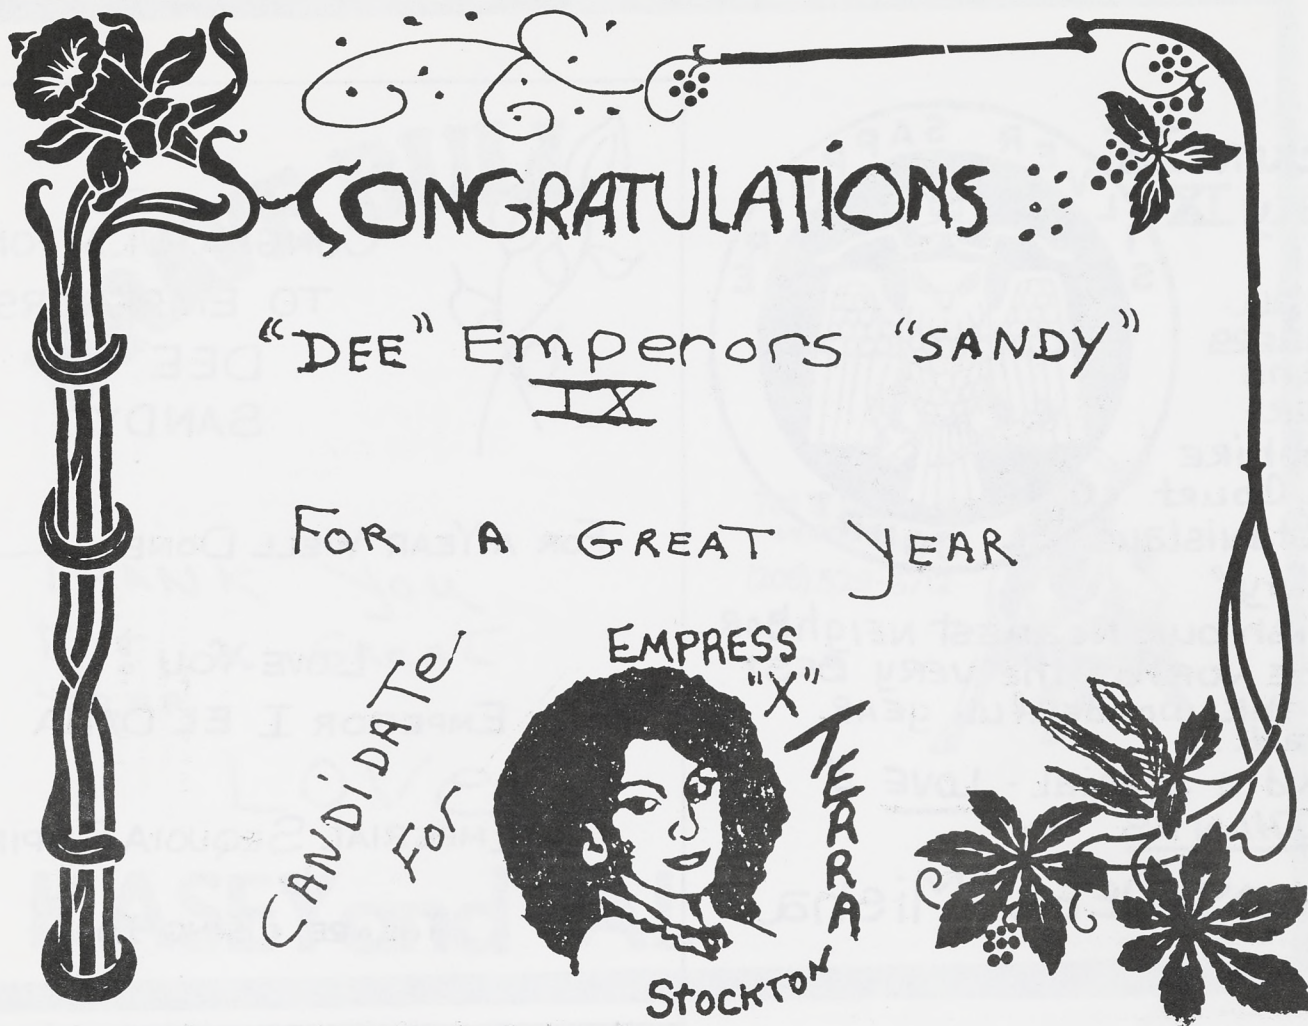 CONGRATULATIONS
"DEE" Emperors "SANDY"
IX
FOR A GREAT YEAR
CANDIDATE
FOR
EMPRESS
"X"
TERRA
STOCKTON